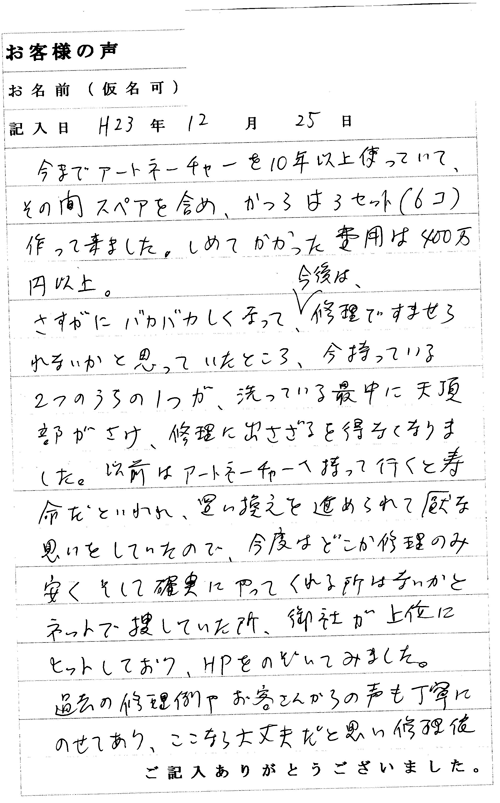 お客様の声
お名前（仮名可）
記入日 H23 年 12 月 25 日
今までアートネーチャーを10年以上使っていて、
その間スペアを含め、かつらは3セット(6コ)
作って来ました。しめてかかった費用は400万
円以上。
今後は、
さすがにバカバカしくなって、修理ですませら
れないかと思っていたところ、今持っている
2つのうちの1つが、洗っている最中に天頂
部がさけ、修理に出さざるを得なくなりま
した。以前はアートネーチャーへ持って行くと寿
命だといわれ、買い換えを進められて厭な
思いをしていたので、今度はどこか修理のみ
安くそして確実にやってくれる所はないかと
ネットで捜していた所、御社が上位に
ヒットしており、HPをのぞいてみました。
過去の修理例やお客さんからの声も丁寧に
のせてあり、ここなら大丈夫だと思い修理後
ご記入ありがとうございました。